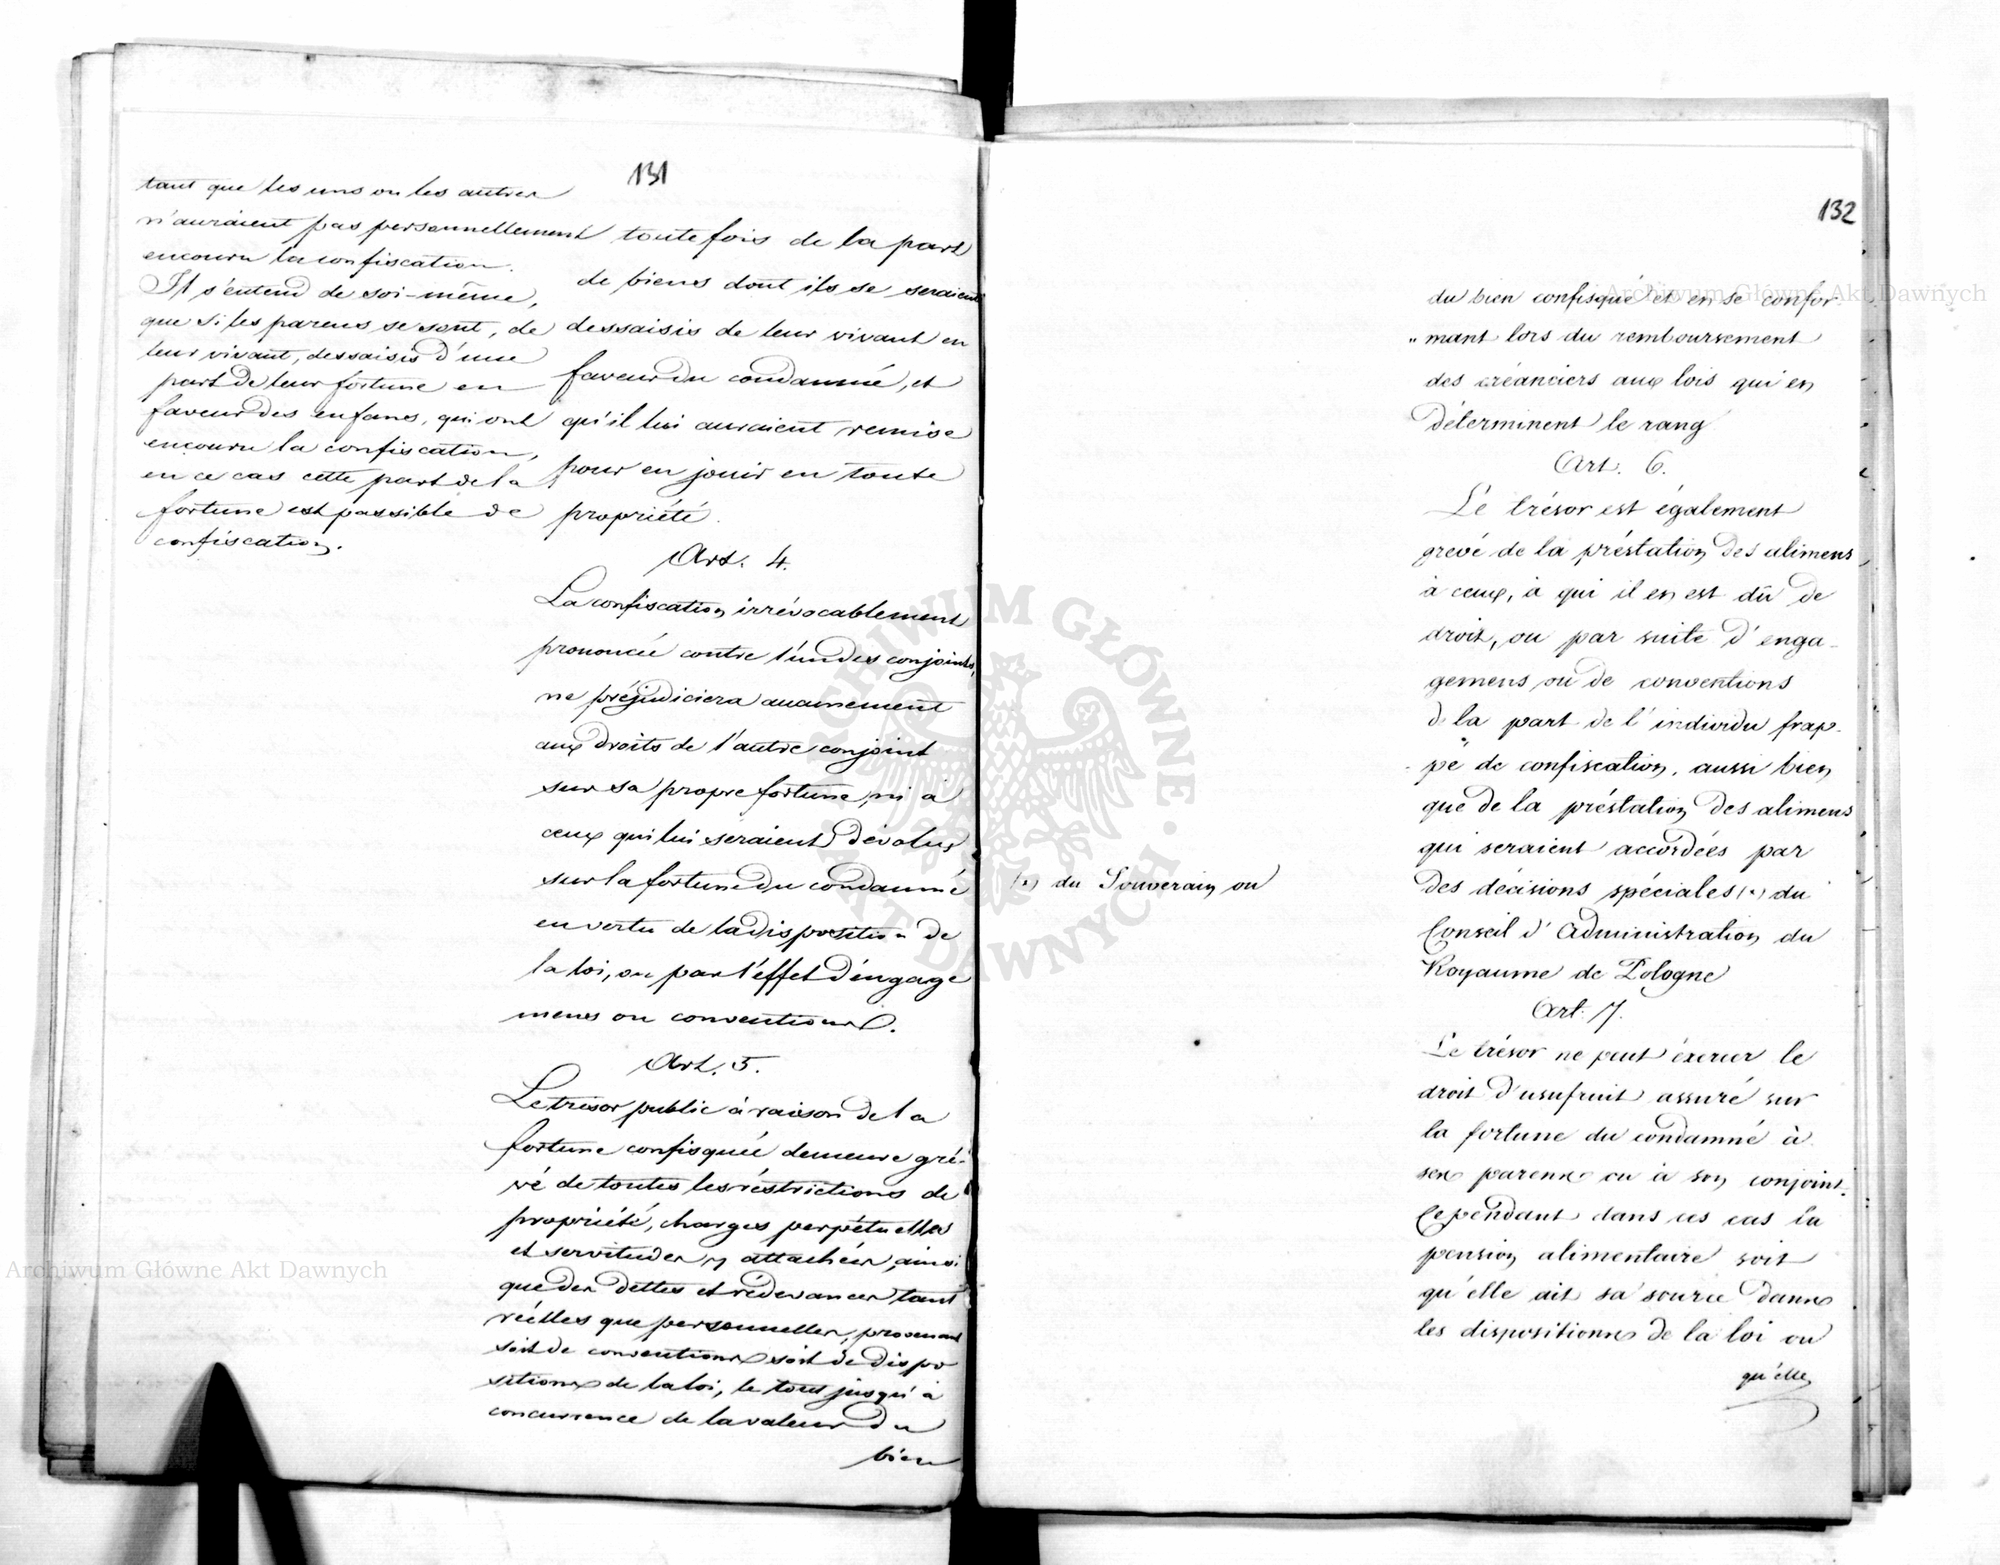 131
tant que les uns ou les autres
n'auraient pas personnellement
encouru la confiscation.
Il s'entend de soi-même,
que si les parens se sont, de
leur vivant, dessaisis d'une
part de leur fortune en
faveur des enfans, qui ont
encouru la confiscation,
en ce cas cette part de la
fortune est passible de
confiscation.
toutefois de la part
de biens dont ils se seraient
dessaisis de leur vivant en
faveur du condamné, et
qu'il lui auraient remise
pour en jouir en toute
propriété.
Art. 4.
La confiscation irrévocablement
prononcée contre l'un des conjoints,
ne préjudiciera aucunement
aux droits de l'autre conjoint
sur sa propre fortune, ni à
ceux qui lui seraient dévolus
sur la fortune du condamné
en vertu de la disposition de
la loi, ou par l'effet d'engage
mens ou conventions.
Art. 5.
Le trésor public à raison de la
fortune confisquée demeure gré-
vé de toutes les réstrictions de
propriété, charges perpétuelles
et servitudes y attachées, ainsi
que des dettes et rédevances tant
réelles que personnelles, provenant
soit de conventions soit de dispo
sitions de la loi, le tout jusqu'à
concurrence de la valeur du
bien
132
du bien confisqué et en se confor-
mant lors du remboursement
des créanciers aux lois qui en
déterminent le rang.
Art. 6.
Le trésor est également
grevé de la préstation des alimens
à ceux, à qui il en est dû de
droit, ou par suite d'enga-
gemens ou de conventions
d la part de l'individu frap-
pé de confiscation, aussi bien
que de la préstation des alimens
qui seraient accordées par
des décisions spéciales (*) du
Conseil d'Administration du
Royaume de Pologne
(*) du Souverain ou
Art. 7.
Le trésor ne peut éxercer le
droit d'usufruit assuré sur
la fortune du condamné à
ses parens ou à son conjoint.
Cependant dans ces cas la
pension alimentaire soit
qu'elle ait sa source dans
les dispositions de la loi ou
qu'elle
Archiwum Główne Akt Dawnych
Archiwum Główne Akt Dawnych
ARCHIWUM GŁÓWNE AKT DAWNYCH